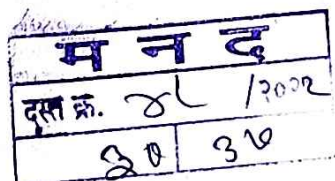 म न द
दस्त क्र. ४८ /२०२२
३७ ३७